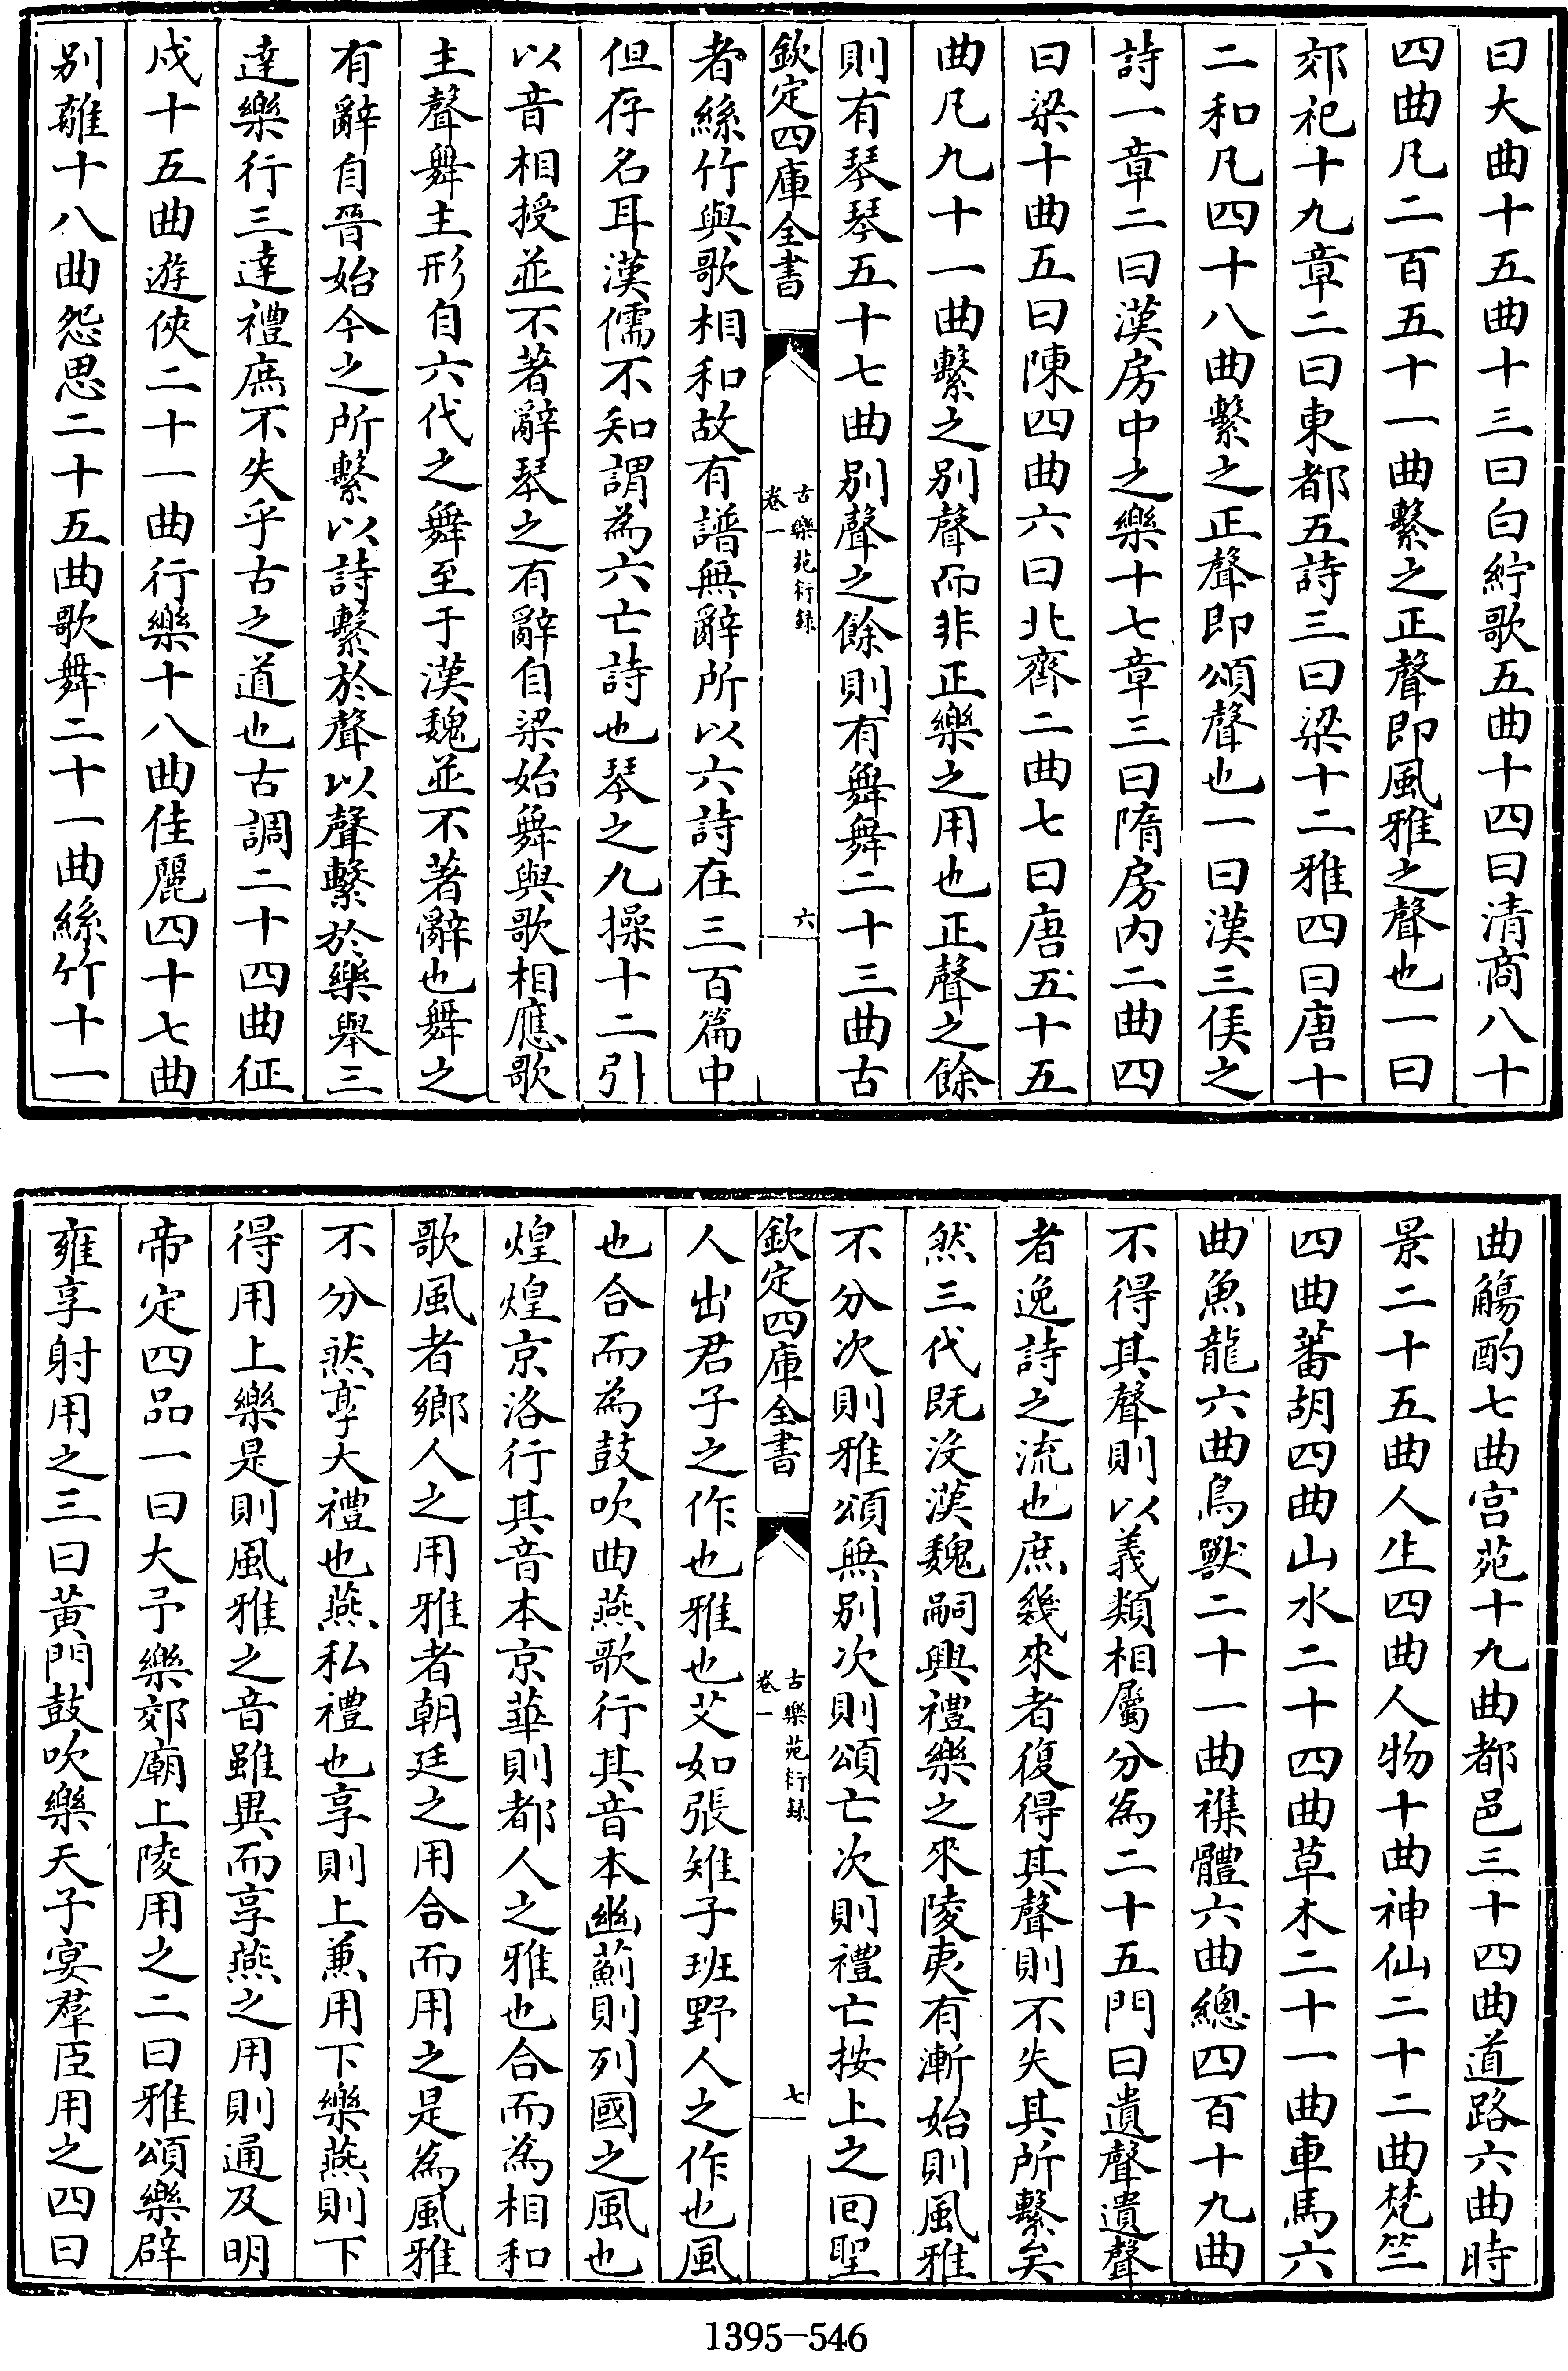 曰大曲十五曲十三曰白紵歌五曲十四曰清商八十
四曲凡二百五十一曲繫之正聲即風雅之聲也一曰
郊祀十九章二曰東都五詩三曰梁十二雅四曰唐十
二和凡四十八曲繫之正聲即頌聲也一曰漢三侯之
詩一章二曰漢房中之樂十七章三曰隋房内二曲四
曰梁十曲五曰陳四曲六曰北齊二曲七曰唐五十五
曲凡九十一曲繫之别聲而非正樂之用也正聲之餘
則有琴琴五十七曲别聲之餘則有舞舞二十三曲古
欽定四庫全書
古樂苑衍録
卷一
六
者絲竹與歌相和故有譜無辭所以六詩在三百篇中
但存名耳漢儒不知謂為六亡詩也琴之九操十二引
以音相授並不著辭琴之有辭自梁始舞與歌相應歌
主聲舞主形自六代之舞至于漢魏並不著辭也舞之
有辭自晉始今之所繫以詩繫於聲以聲繫於樂舉三
達樂行三達禮庶不失乎古之道也古調二十四曲征
戍十五曲遊俠二十一曲行樂十八曲佳麗四十七曲
别離十八曲怨思二十五曲歌舞二十一曲絲竹十一
曲觴酌七曲宫苑十九曲都邑三十四曲道路六曲時
景二十五曲人生四曲人物十曲神仙二十二曲梵竺
四曲蕃胡四曲山水二十四曲草木二十一曲車馬六
曲魚龍六曲鳥獸二十一曲襍體六曲總四百十九曲
不得其聲則以義類相屬分為二十五門曰遺聲遺聲
者逸詩之流也庶幾來者復得其聲則不失其所繫矣
然三代既没漢魏嗣興禮樂之來陵夷有漸始則風雅
不分次則雅頌無别次則頌亡次則禮亡按上之囘聖
欽定四庫全書
古樂苑衍録
卷一
七
人出君子之作也雅也艾如張雉子班野人之作也風
也合而為鼓吹曲燕歌行其音本幽薊則列國之風也
煌煌京洛行其音本京華則都人之雅也合而為相和
歌風者鄉人之用雅者朝廷之用合而用之是為風雅
不分然享大禮也燕私禮也享則上兼用下樂燕則下
得用上樂是則風雅之音雖異而享燕之用則通及明
帝定四品一曰大予樂郊廟上陵用之二曰雅頌樂辟
雍享射用之三曰黃門鼓吹樂天子宴羣臣用之四曰
1395-546